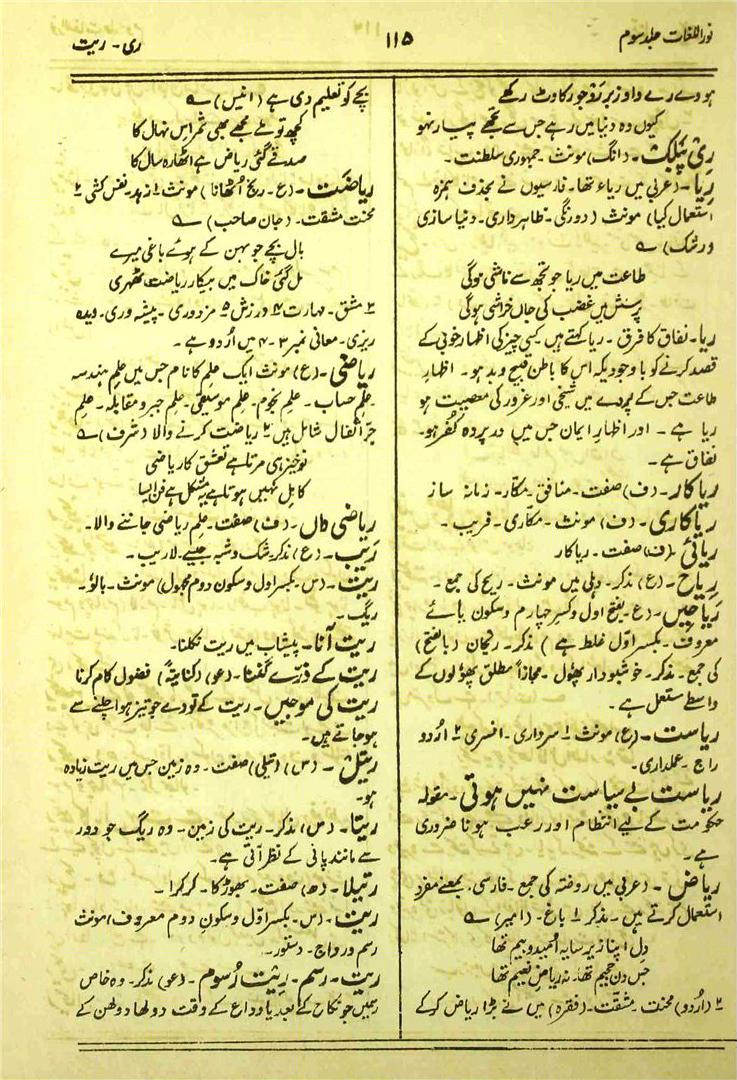 نور اللغات جلد سوم
۱۱۵
ری - ریت
ہووے رے داوزبر رَوْ جو رکاوٹ رکھے
کیوں وہ دنیا میں رہے جس سے تجھے پیار نہو
ری پبلک - (انگ) مونث - جمہوری سلطنت -
رِیا - (عربی میں ریاء تھا - فارسیوں نے بحذف ہمزہ
استعمال کیا) مونث (دورنگی - ظاہر داری - دنیا سازی
ورشک) ؎
طاعت میں ریا جو تجھ سے ناشی ہوگی
پرسش میں غضب کی جاں خراشی ہوگی
ریا - نفاق کا فرق - ریا کہتے ہیں کسی چیز کی اظہار خوبی کے
قصد کرنے کو باوجودیکہ اس کا باطن قبیح و بد ہو - اظہارِ
طاعت جس کے پردے میں شیخی اور غرور کی معصیت ہو
ریا ہے - اور اظہارِ ایمان جس میں در پردہ کفر ہو -
نفاق ہے -
ریا کار - (ف) صفت - منافق - مکّار - زمانہ ساز
ریا کاری - (ف) مونث - مکّاری - فریب -
ریائی (ف) صفت - ریاکار
رِیاح - (ع) مذکر - دہلی میں مونث - ریح کی جمع -
رَیاحِیں - (ع - بفتح اول وکسر چہارم وسکون یائے
معروف - بکسر اوّل غلط ہے) مذکر - ریحان (بالفتح)
کی جمع - مذکر - خوشبودار پھول - مجازاً مطلق پھولوں کے
واسطے مستعمل ہے -
ریاست - (ع) مونث ۱ سرداری - افسری ۲ اُردو
راج - عملداری -
ریاست بے سیاست نہیں ہوتی - مقولہ
حکومت کے لیے انتظام اور رعب ہونا ضروری
ہے -
ریاض - (عربی میں روضتہ کی جمع - فارسی بمعنے مفرد
استعمال کرتے ہیں - مذکر ۱ باغ - (امیر) ؎
دل اپنا زیر سایہ اُمید و بیم تھا
جس دن جحیم تھا - نہ ریاضِ نعیم تھا
۲ (اُردو) محنت - مشقت - (فقرہ) میں نے بڑا ریاض کر کے
بچے کو تعلیم دی ہے (انیس) ؎
کچھ تو ملے مجھے بھی ثمر اس نہال کا
صدقے گئی ریاض ہے اٹھارہ سال کا
ریاضت - (ع - رنج اُٹھانا) مونث ۱ زہد - نفس کشی ۲
محنت مشقت - (جان صاحب) ؎
بال بچے جو بہن کے ہوئے باغی میرے
مل گئی خاک میں بیکار ریاضت ٹھہری
۳ مشق - مہارت ۴ ورزش ۵ مزدوری - پیشہ وری - دیدہ
ریزی - معانی نمبر ۳ - ۴ میں اُردو ہے -
ریاضی - (ع) مونث ایک علم کا نام جس میں علم ہندسہ
علم حساب - علم نجوم - علم موسیقی - علم جبر و مقابلہ - علم
جرّ اثقال شامل ہیں ۲ ریاضت کرنے والا (شرف) ؎
نو خیز ہی مرتا ہے تعشق کا ریاضی
کامل نہیں ہوتا ہے یہ مشکل ہے فن ایسا
ریاضی داں - (ف) صفت - علم ریاضی جاننے والا -
رَیب - (ع) مذکر - شک و شبہ جیسے لاریب -
ریت - (س - بکسر اول وسکون دوم مجہول) مونث - بالو -
ریگ -
ریت آنا - پیشاب میں ریت نکلنا -
ریت کے ذرّے گننا - (عو) (کنایتہً) فضول کام کرنا
ریت کی موجیں - ریت کے تودے جو تیز ہوا چلنے سے
ہو جاتے ہیں -
ریتل - (س) (تیلی) صفت - وہ زمین جس میں ریت زیادہ
ہو -
ریتا - (س) مذکر - ریت کی زمین - وہ ریگ جو دور
سے مانند پانی کے نظر آتی ہے -
رتیلا - (ھ) صفت - بھوڑ کا - کرکرا -
ریت - (س - بکسر اوّل وسکون دوم معروف) مونث
رسم و رواج - دستور -
ریت - رسم - ریت رُسوم - (عو) مذکر - وہ خاص
رسمیں جو نکاح کے بعد یا وداع کے وقت دولھا دولھن کے